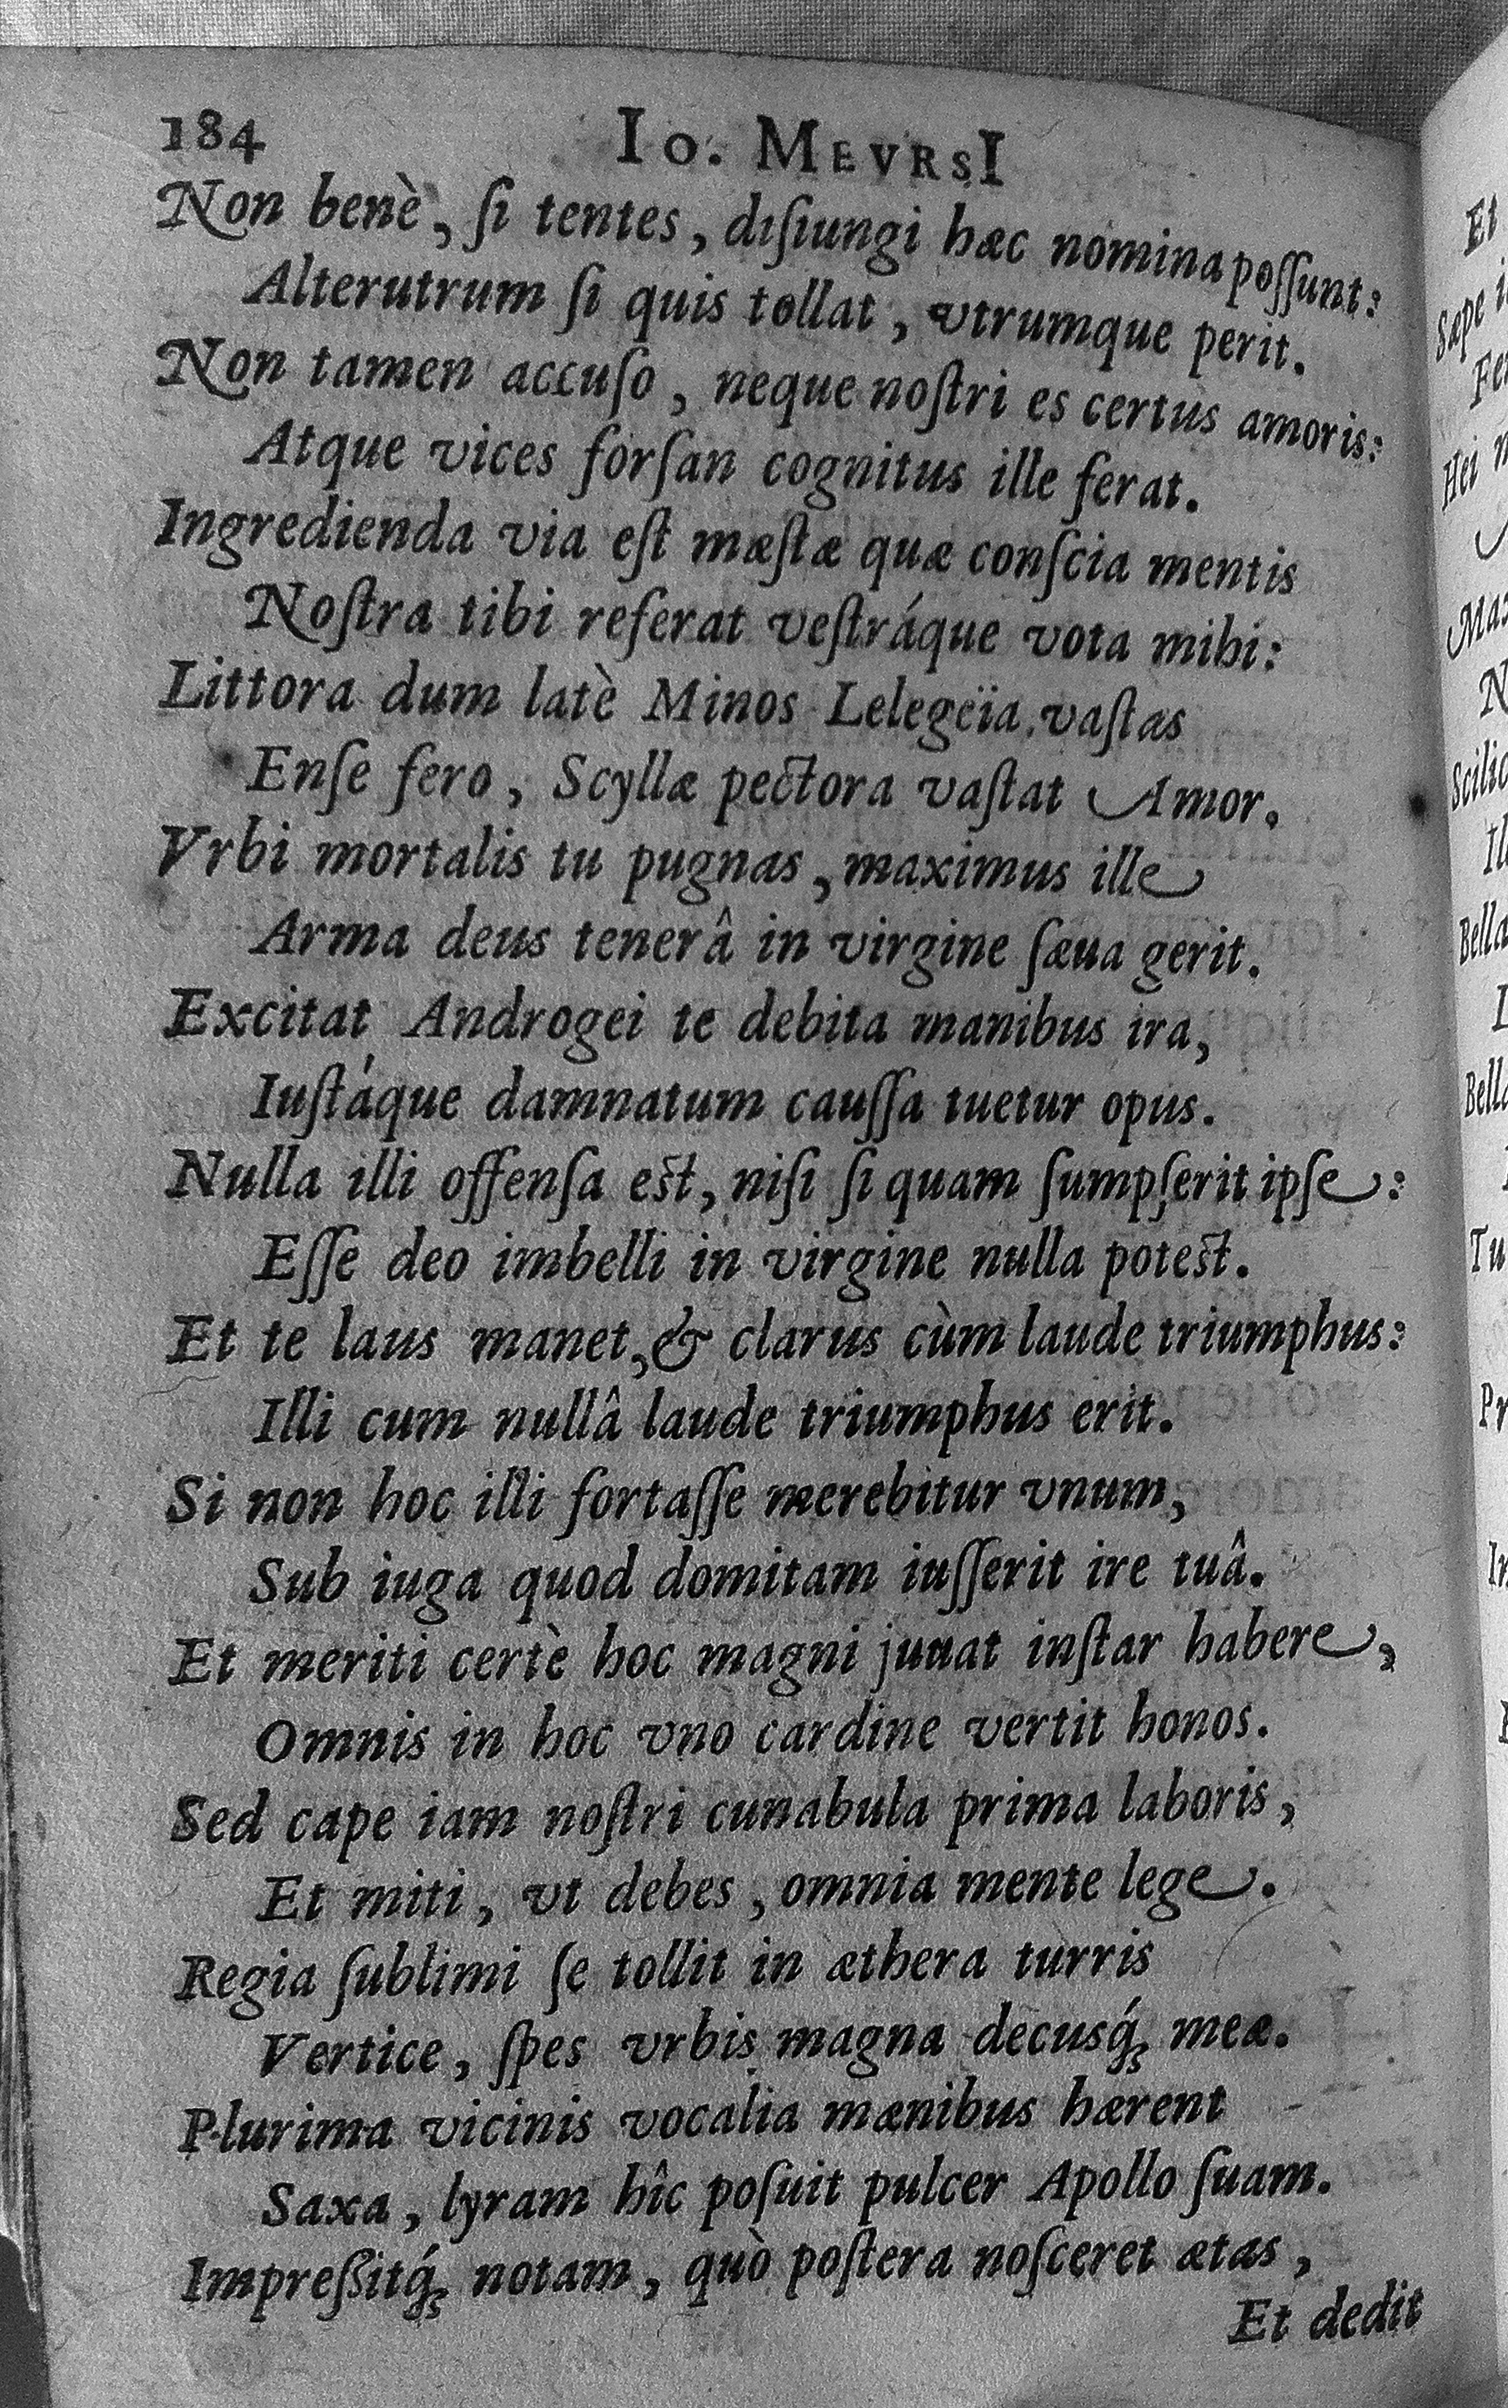 184 Io. MEVRSI
Non benè, ſi tentes, diſiungi hæc nomina poſſunt:
Alterutrum ſi quis tollat, vtrumque perit.
Non tamen accuſo, neque noſtri es certus amoris:
Atque vices forſan cognitus ille ferat.
Ingredienda via eſt mæſtæ quæ conſcia mentis
Noſtra tibi referat veſtráque vota mihi:
Littora dum latè Minos Lelegeïa vaſtas
Enſe fero, Scyllæ pectora vaſtat Amor.
Vrbi mortalis tu pugnas, maximus ille
Arma deus tenerâ in virgine ſæua gerit.
Excitat Androgei te debita manibus ira,
Iuſtáque damnatum cauſſa tuetur opus.
Nulla illi offenſa eſt, niſi ſi quam ſumpſerit ipſe:
Eſſe deo imbelli in virgine nulla poteſt.
Et te laus manet, & clarus cùm laude triumphus:
Illi cum nullâ laude triumphus erit.
Si non hoc illi fortaſſe merebitur vnum,
Sub iuga quod domitam iuſſerit ire tuâ.
Et meriti certè hoc magni juuat inſtar habere,
Omnis in hoc vno cardine vertit honos.
Sed cape iam noſtri cunabula prima laboris,
Et miti, vt debes, omnia mente lege.
Regia ſublimi ſe tollit in æthera turris
Vertice, ſpes vrbis magna decusq́; meæ.
Plurima vicinis vocalia mænibus hærent
Saxa, lyram hîc poſuit pulcer Apollo ſuam.
Impreſſitq́; notam, quò poſtera noſceret ætas,
Et dedit
Et
Sæpe
Hei
Bella
Tu